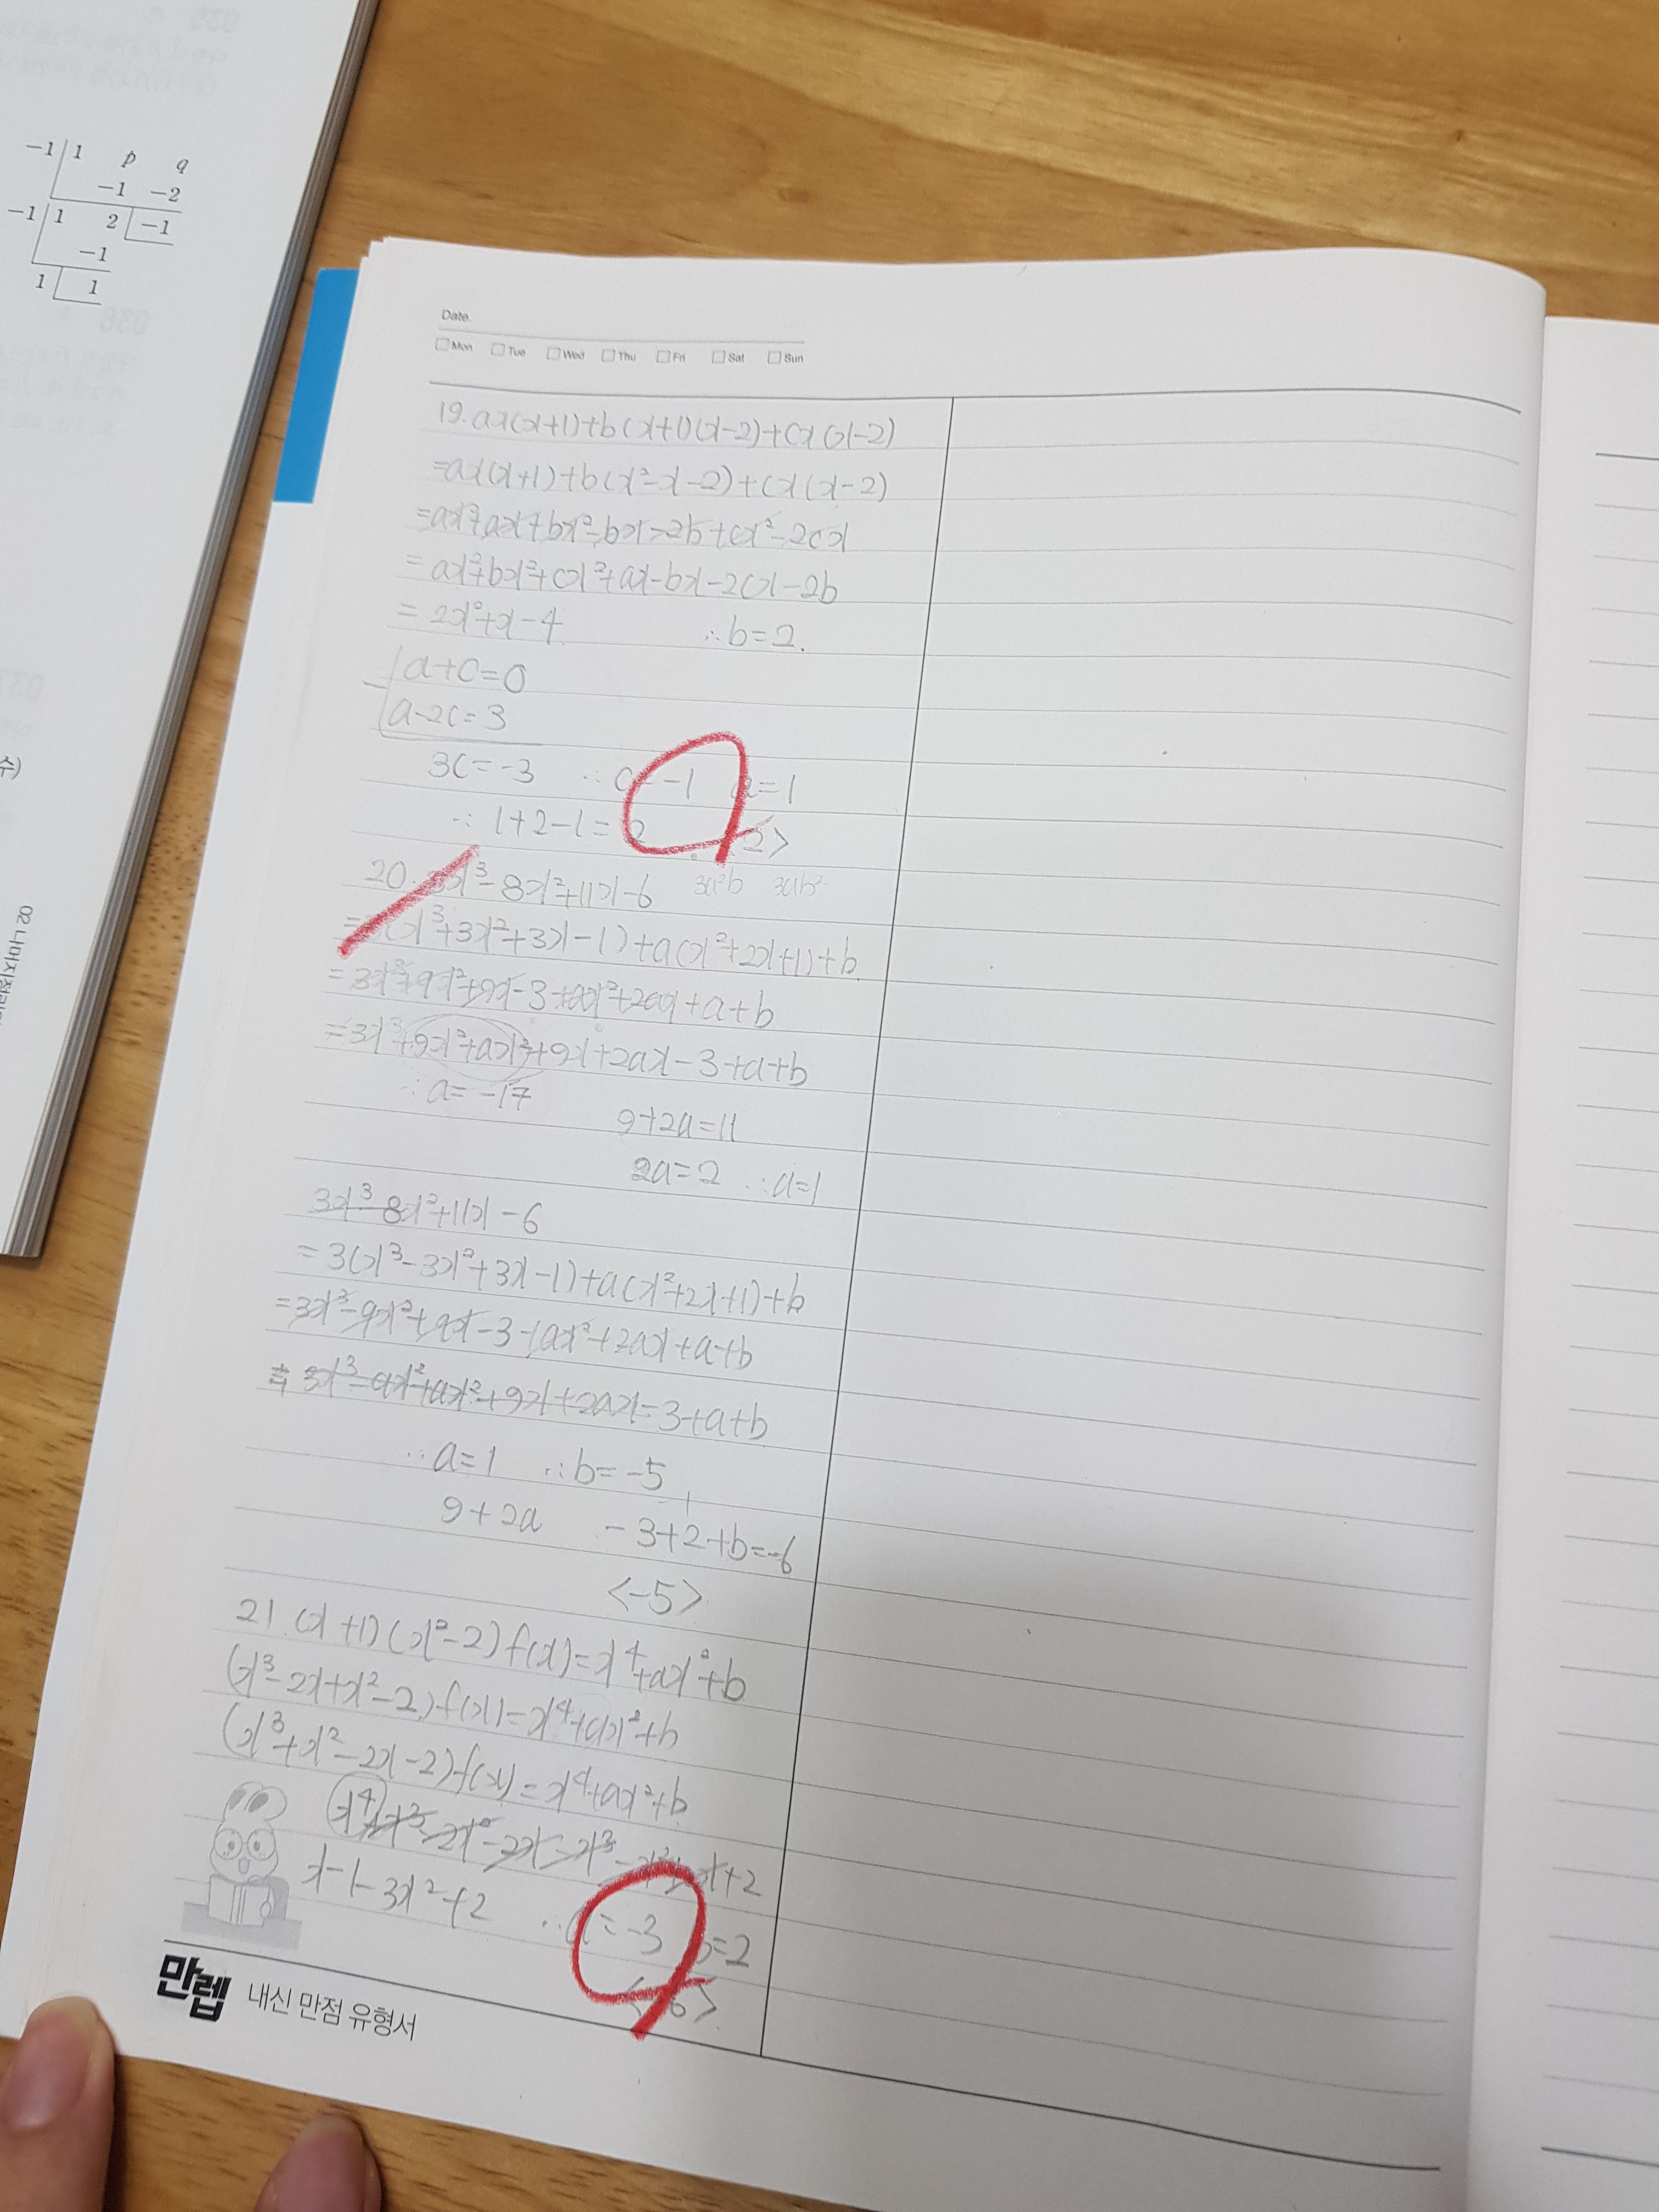 -1 1 p q
-1 -2
-1 1 2 -1
-1
1 1
수)
Date.
Mon Tue Wed Thu Fri Sat Sun
19. ax(x+1)+b(x+1)(x-2)+cx(x-2)
=ax(x+1)+b(x²-x-2)+cx(x-2)
=ax²+ax+bx²-bx-2b+cx²-2cx
=ax²+bx²+cx²+ax-bx-2cx-2b
=2x²+x-4 ∴b=2.
a+c=0
a-2c=3
3c=-3 ∴c=-1 a=1
∴1+2-1=2 <2>
20. 3x³-8x²+11x-6 3a²b 3ab²
=3(x³+3x²+3x-1)+a(x²+2x+1)+b
=3x³+9x²+9x-3+ax²+2ax+a+b
=3x³+9x²+ax²+9x+2ax-3+a+b
∴a=-17
9+2a=11
2a=2 ∴a=1
3x³-8x²+11x-6
=3(x³-3x²+3x-1)+a(x²+2x+1)+b
=3x³-9x²+9x-3+ax²+2ax+a+b
=3x³-9x²+ax²+9x+2ax=3+a+b
∴a=1 ∴b=-5
9+2a -3+2+b=-6
<-5>
21. (x+1)(x²-2)f(x)=x⁴+ax²+b
(x³-2x+x²-2)f(x)=x⁴+ax²+b
(x³+x²-2x-2)f(x)=x⁴+ax²+b
x⁴+x³-2x²-2x-x³-x²+2x+2
x-1-3x²+2 ∴a=-3 b=2
만렙 내신 만점 유형서